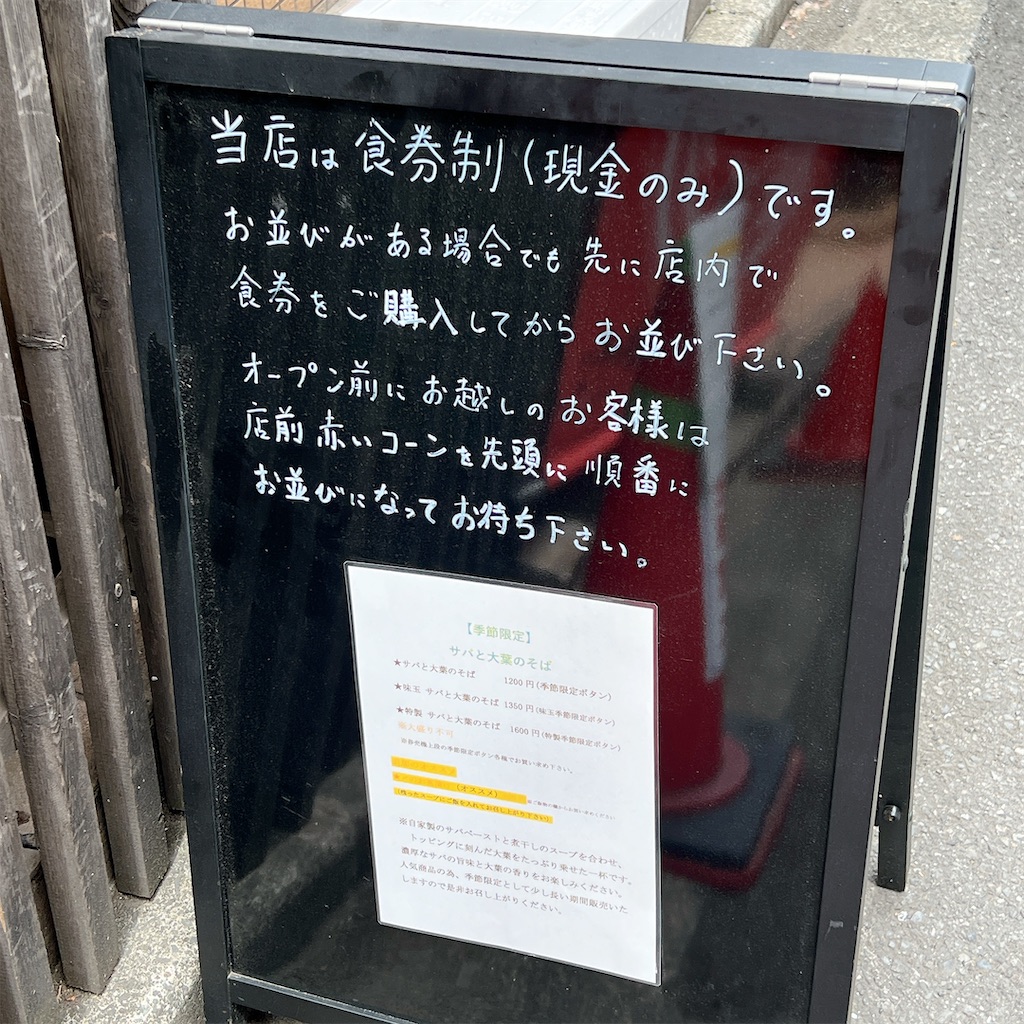 当店は食券制(現金のみ)です。
お並びがある場合でも先に店内で
食券をご購入してからお並び下さい。
オープン前にお越しのお客様は
店前赤いコーンを先頭に順番に
お並びになってお待ち下さい。
【季節限定】
サバと大葉のそば
★サバと大葉のそば 1200円(季節限定ボタン)
★味玉 サバと大葉のそば 1350円(味玉季節限定ボタン)
★特製 サバと大葉のそば 1600円(特製季節限定ボタン)
※大盛り不可
※券売機上段の季節限定ボタン各種でお買い求め下さい。
(オススメ)
(残ったスープにご飯を入れてお召し上がり下さい)
※自家製のサバペーストと煮干しのスープを合わせ。
トッピングに刻んだ大葉をたっぷり乗せた一杯です。
濃厚なサバの旨味と大葉の香りをお楽しみください。
人気商品の為、季節限定として少し長い期間販売いた
しますので是非お召し上がりください。